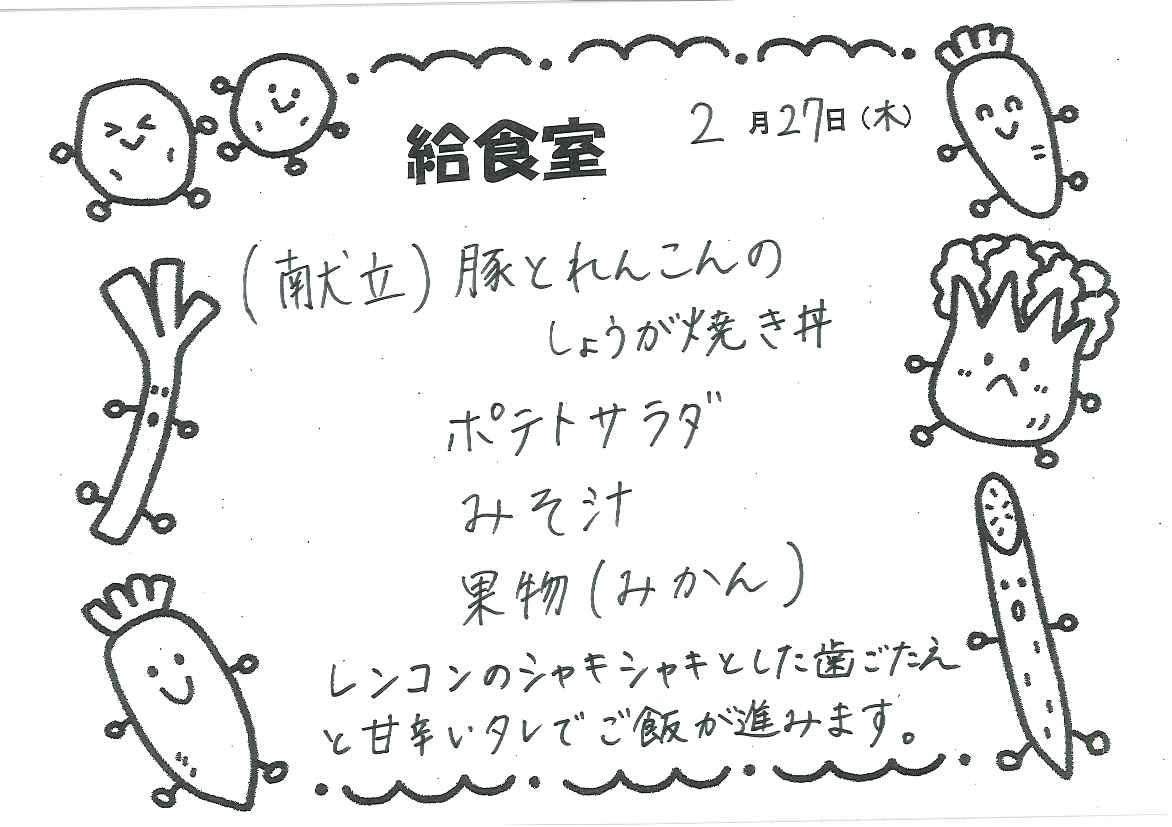 給食室
2月27日(木)
(献立)豚とれんこんの
しょうが焼き丼
ポテトサラダ
みそ汁
果物(みかん)
レンコンのシャキシャキとした歯ごたえ
と甘辛いタレでご飯が進みます。